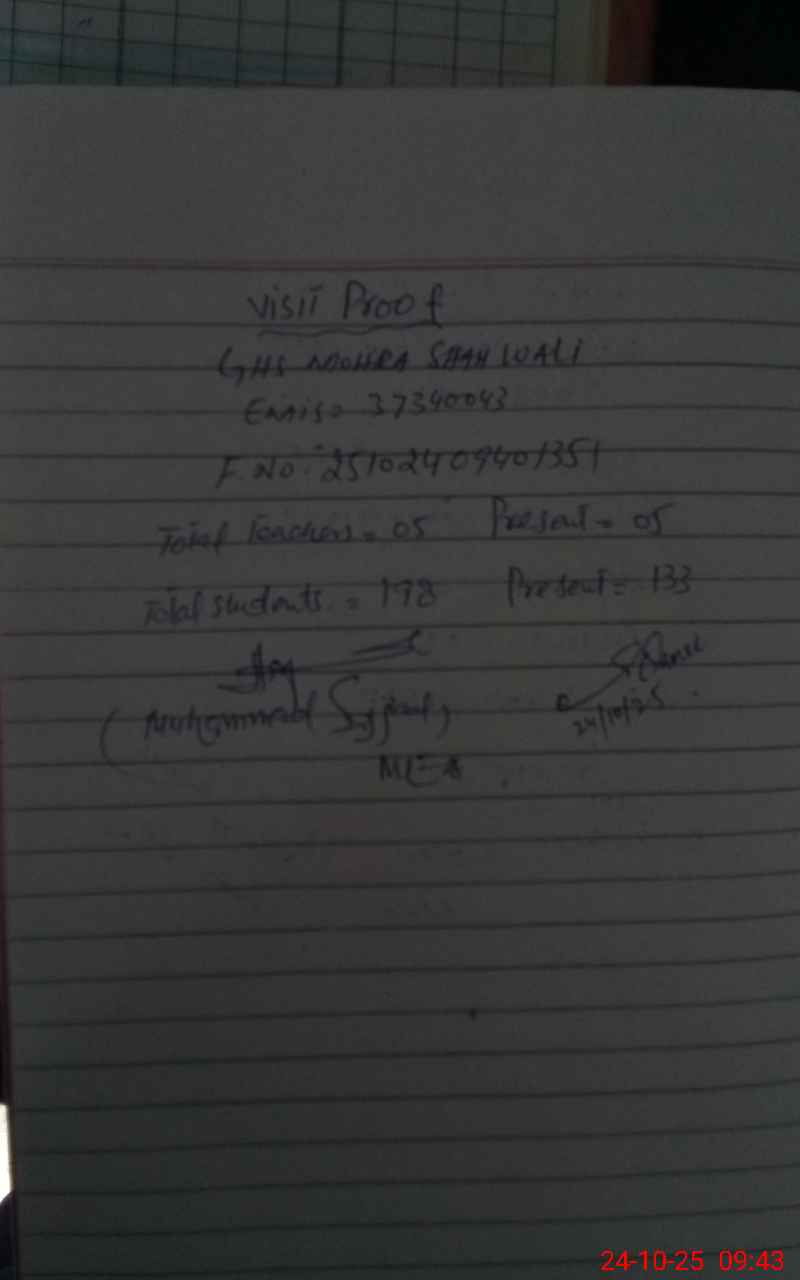 Visit Proof
GHS NOOHRA SHAH WALI
Emis= 37340043
F.No: 25102409401351
Total Teachers = 05 Present = 05
Total students = 198 Present = 133
(Muhammad Sajjad)
24/10/25
24-10-25 09:43